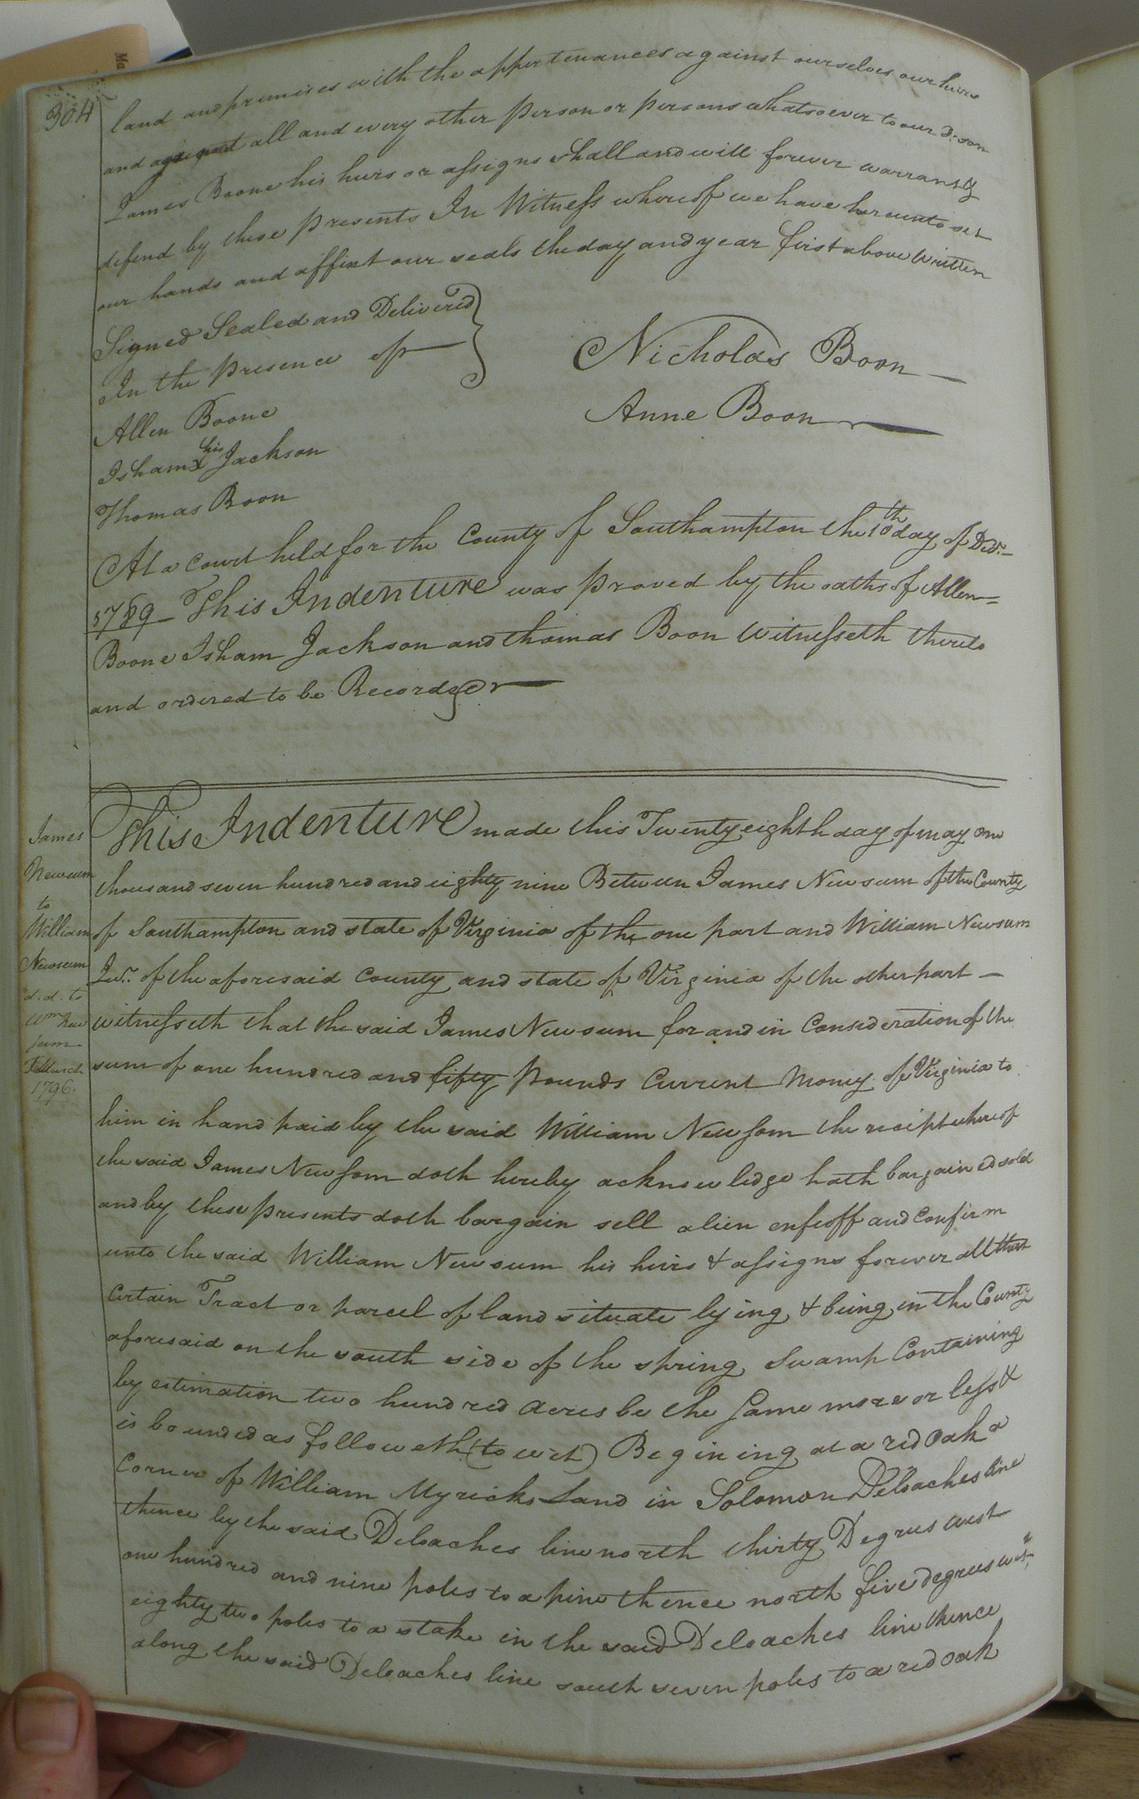 304
land and premises with the appertenances against ourselves our heirs
and against all and every other person or persons whatsoever to our son
James Boone his heirs or assigns shall and will forever warrant &
defend by these presents In Witness whereof we have hereunto set
our hands and affixt our seals the day and year first above Written
Signed Sealed and Delivered
In the presence of
Nicholas Boon
Anne Boon
Allen Boone
his
Isham x Jackson
Thomas Boon
At a Court held for the County of Southampton the 10th day of Decr.
1789 This Indenture was proved by the oaths of Allen
Boone Isham Jackson and thomas Boon Witnesseth thereto
and ordered to be Recorded
James
Newsum
to
William
Newsum
d. d. to
Wm New
sum
March
1796.
This Indenture made this Twenty eighth day of may one
thousand seven hundred and eighty nine Between James Newsum of the County
of Southampton and state of Virginia of the one part and William Newsum
Junr. of the aforesaid County and state of Virginia of the other part
witnesseth that the said James Newsum for and in Consideration of the
sum of one hundred and fifty Pounds Current Money of Virginia to
him in hand paid by the said William Newsom the recipt whereof
the said James Newsom doth hereby acknowlidge hath bargained sold
and by these presents doth bargain sell alien enfeoff and Confirm
unto the said William Newsum his heirs & assigns forever all that
Certain Tract or parcel of land situate lying & being in the County
aforesaid on the south side of the spring Swamp Containing
by estimation two hundred acres be the same more or less &
is bounded as followeth (to wit) Begining at a red oak a
Corner of William Myricks Land in Solomon Deloaches line
thence by the said Deloaches line north thirty Degrees west
one hundred and nine poles to a pine thence north five degrees west
eighty two poles to a stake in the said Deloaches line thence
along the said Deloaches line south seven poles to a red oak